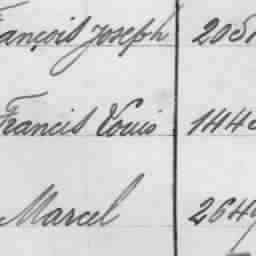 François Joseph 2051
Francis Louis 1448
Marcel 2649